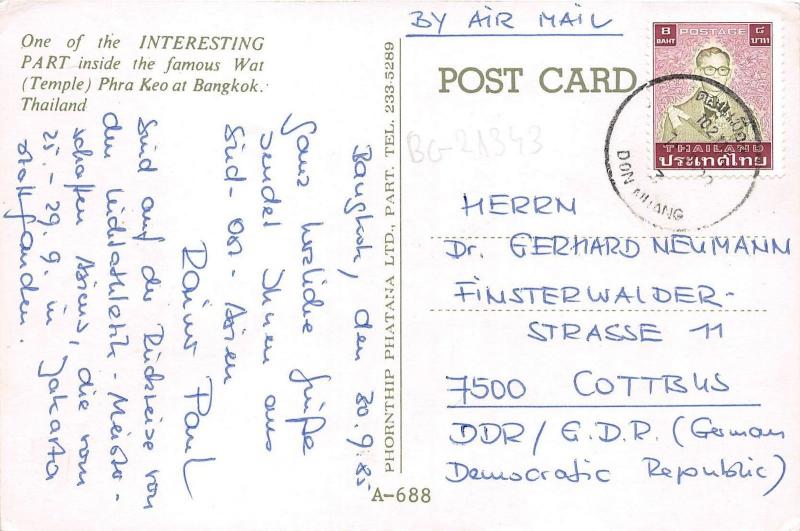 One of the INTERESTING
PART inside the famous Wat
(Temple) Phra Keo at Bangkok.
Thailand
BY AIR MAIL
POST CARD
BG-21343
8
BAHT
POSTAGE
๘
บาท
THAILAND
ประเทศไทย
DON MUANG
HERRN
Dr. GERHARD NEUMANN
FINSTERWALDER-
STRASSE 11
7500 COTTBUS
DDR / G.D.R. (German
Democratic Republic)
PHORNTHIP PHATANA LTD., PART. TEL. 233-5289
A-688
Bangkok, den 30.9.85
Ganz herzliche Grüße
sendet Ihnen aus
Süd-Ost-Asien
Rainer Paul
sind auf der Rückreise von
den Leichtathletik-Meister-
schaften Asiens, die vom
25.-29.9. in Jakarta
stattfanden.